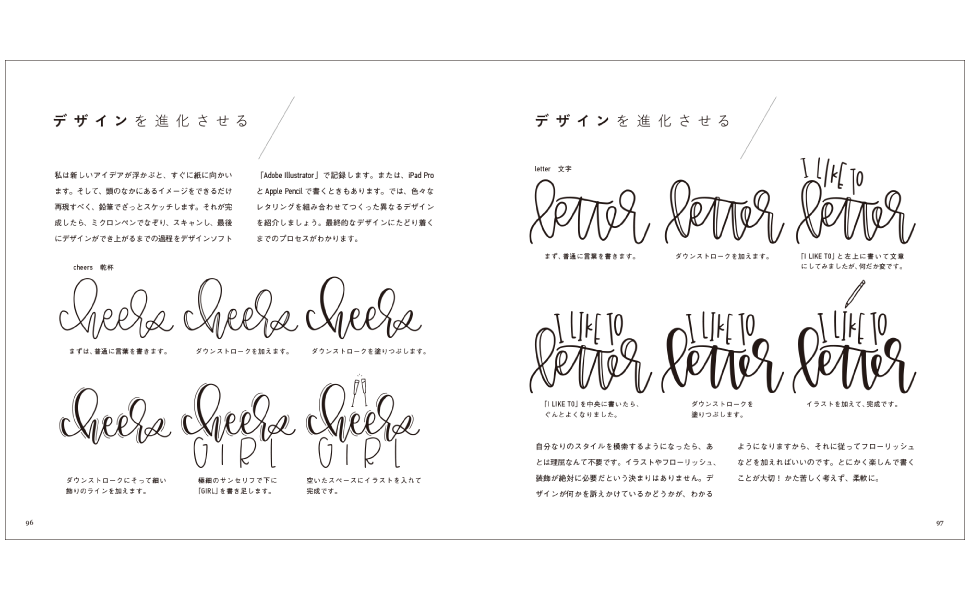 デザインを進化させる
私は新しいアイデアが浮かぶと、すぐに紙に向かい
ます。そして、頭のなかにあるイメージをできるだけ
再現すべく、鉛筆でざっとスケッチします。それが完
成したら、ミクロンペンでなぞり、スキャンし、最後
にデザインができ上がるまでの過程をデザインソフト
「Adobe Illustrator」で記録します。または、iPad Pro
と Apple Pencil で書くときもあります。では、色々な
レタリングを組み合わせてつくった異なるデザイン
を紹介しましょう。最終的なデザインにたどり着く
までのプロセスがわかります。
cheers 乾杯
cheers
cheers
cheers
まずは、普通に言葉を書きます。
ダウンストロークを加えます。
ダウンストロークを塗りつぶします。
cheers
cheers
GIRL
cheers
GIRL
ダウンストロークにそって細い
飾りのラインを加えます。
極細のサンセリフで下に
「GIRL」を書き足します。
空いたスペースにイラストを入れて
完成です。
96
デザインを進化させる
letter 文字
letter
letter
I LIKE TO
letter
まず、普通に言葉を書きます。
ダウンストロークを加えます。
「I LIKE TO」と左上に書いて文章
にしてみましたが、何だか変です。
I LIKE TO
letter
I LIKE TO
letter
I LIKE TO
letter
「I LIKE TO」を中央に書いたら、
ぐんとよくなりました。
ダウンストロークを
塗りつぶします。
イラストを加えて、完成です。
自分なりのスタイルを模索するようになったら、あ
とは理屈なんて不要です。イラストやフローリッシュ、
装飾が絶対に必要だという決まりはありません。デ
ザインが何かを訴えかけているかどうかが、わかる
ようになりますから、それに従ってフローリッシュ
などを加えればいいのです。とにかく楽しんで書く
ことが大切！ かた苦しく考えず、柔軟に。
97